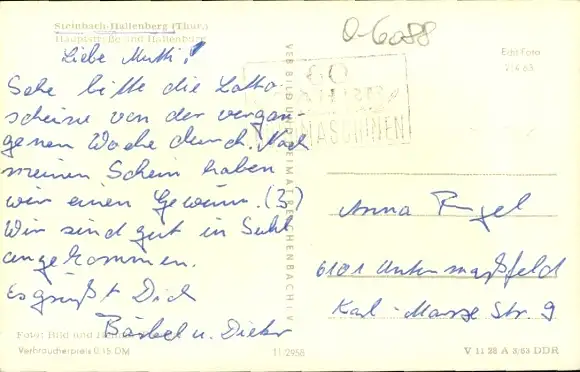 Steinbach-Hallenberg (Thür.)
Hauptstraße und Hallenburg
Liebe Mutti!
Sehe bitte die Lotto-
scheine von der vergan-
genen Woche durch. Nach
meinen Schein haben
wir einen Gewinn. (3)
Wir sind gut in Suhl
angekommen.
Es grüßt Dich
Bärbel u. Dieter
Foto: Bild und
Verbraucherpreis 0,15 DM
11/2958
VEB BILD UND HEIMAT REICHENBACH I. V.
0-6088
Echt Foto
MASCHINEN
Anna Engel
6101 Untermaßfeld
Karl-Marx Str. 9
V 11 28 A 3/63 DDR